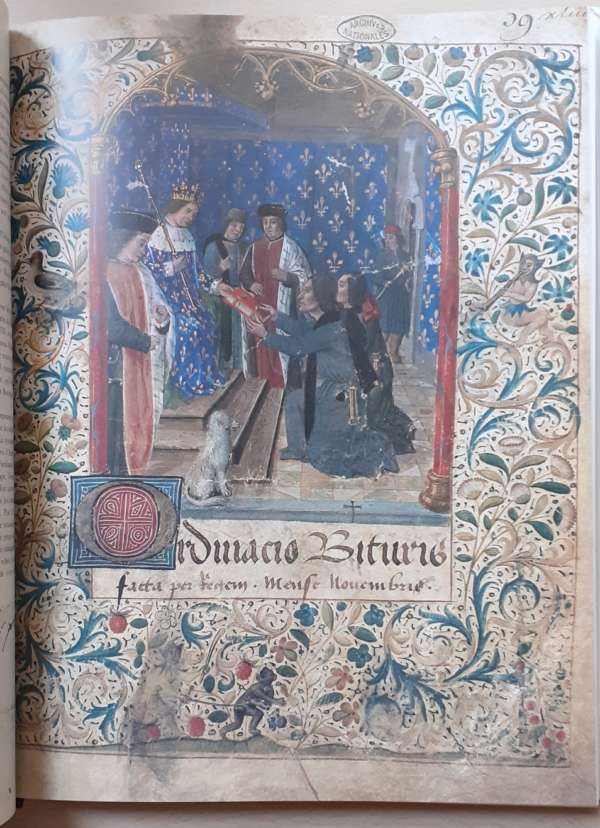 ARCHIVES
NATIONALES
39
Ordinacio Bituris
facta per Regem. Mense Novembris.